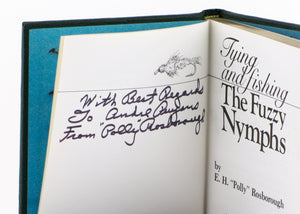 With Best Regards
To Andre
From "Polly Rosborough"
Tying
and fishing
The Fuzzy
Nymphs
by
E. H. "Polly" Rosborough